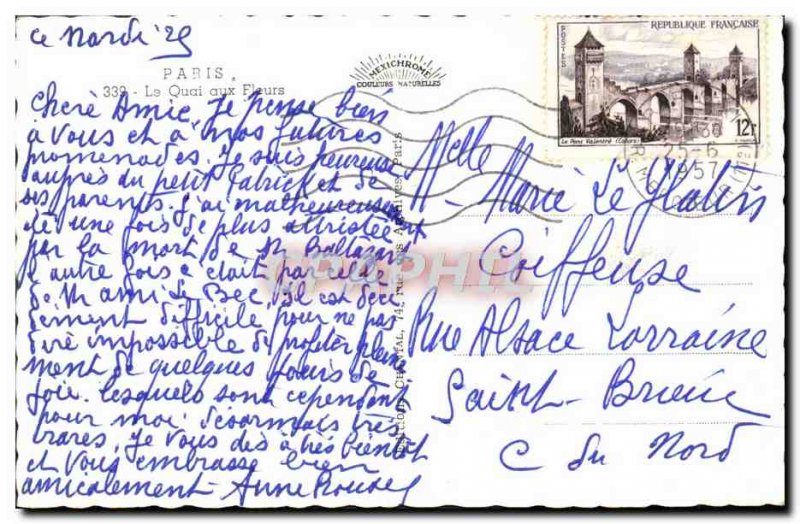 ce Mardi 25
PARIS.
339 - Le Quai aux Fleurs
MEXICHROME
COULEURS NATURELLES
Chère Amie, Je pense bien
à vous et à nos futures
promenades. Je suis heureuse
auprès du petit Patrick et de
ses parents. J'ai malheureusement
été une fois de plus attristée
par la mort de Mr Baltazard
l'autre fois c'était par celle
de Mr ami Le Bec. Il est déci
dément difficile pour ne pas
dire impossible de profiter pleine
ment de quelques jours de
joie. lesquels sont cependant
pour moi désormais très
rares. Je vous dis à très bientôt
et vous embrasse bien
amicalement - Anne
RÉPUBLIQUE FRANÇAISE
POSTES
Le Pont Valentré (Cahors)
12F
25-6
1957
Melle
Marie Le
Coiffeuse
Rue Alsace Lorraine
Saint-Brieuc
C du Nord
CPAPHIL